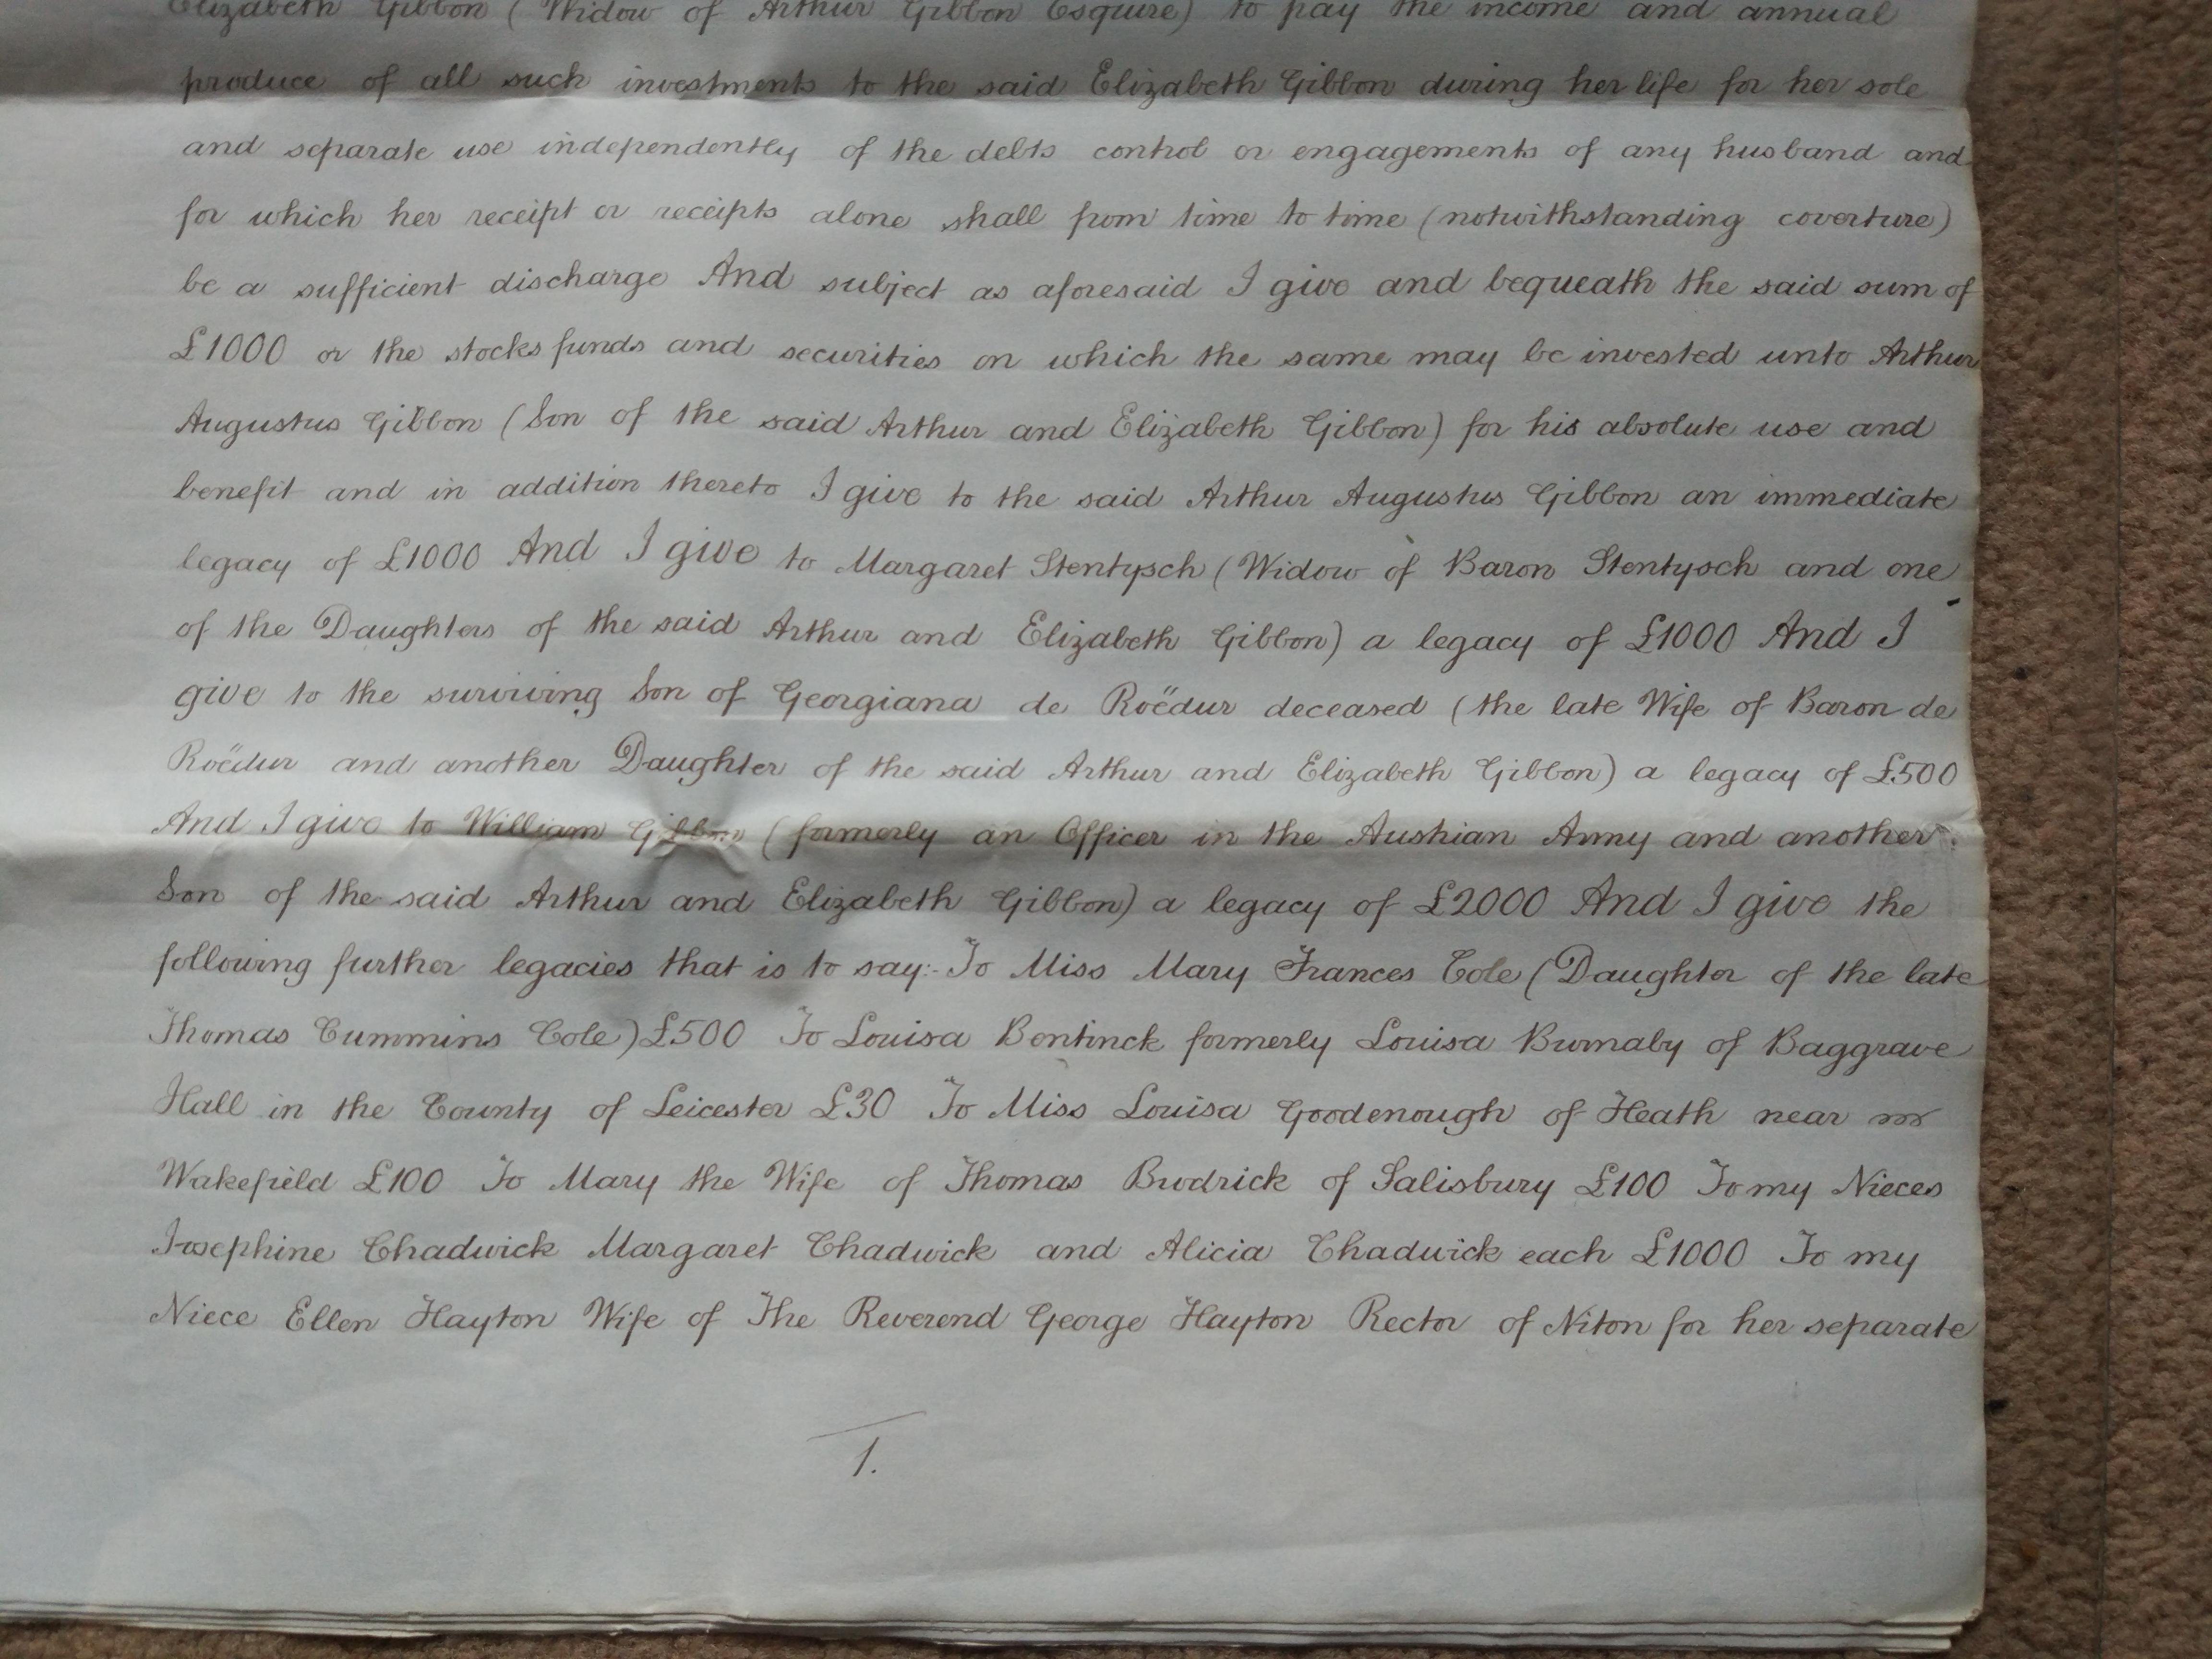 Elizabeth Gibbon (Widow of Arthur Gibbon Esquire) to pay the income and annual
produce of all such investments to the said Elizabeth Gibbon during her life for her sole
and separate use independently of the debts control or engagements of any husband and
for which her receipt or receipts alone shall from time to time (notwithstanding coverture)
be a sufficient discharge And subject as aforesaid I give and bequeath the said sum of
£1000 or the stocks funds and securities on which the same may be invested unto Arthur
Augustus Gibbon (Son of the said Arthur and Elizabeth Gibbon) for his absolute use and
benefit and in addition thereto I give to the said Arthur Augustus Gibbon an immediate
legacy of £1000 And I give to Margaret Stentysch (Widow of Baron Stentysch and one
of the Daughters of the said Arthur and Elizabeth Gibbon) a legacy of £1000 And I
give to the surviving Son of Georgiana de Roëdur deceased (the late Wife of Baron de
Roëdur and another Daughter of the said Arthur and Elizabeth Gibbon) a legacy of £500
And I give to William Gibbon (formerly an Officer in the Austrian Army and another
Son of the said Arthur and Elizabeth Gibbon) a legacy of £2000 And I give the
following further legacies that is to say:- To Miss Mary Frances Cole (Daughter of the late
Thomas Cummins Cole) £500 To Louisa Bentinck formerly Louisa Burnaby of Baggrave
Hall in the County of Leicester £30 To Miss Louisa Goodenough of Heath near
Wakefield £100 To Mary the Wife of Thomas Brodrick of Salisbury £100 To my Nieces
Josephine Chadwick Margaret Chadwick and Alicia Chadwick each £1000 To my
Niece Ellen Hayton Wife of The Reverend George Hayton Rector of Niton for her separate
1.